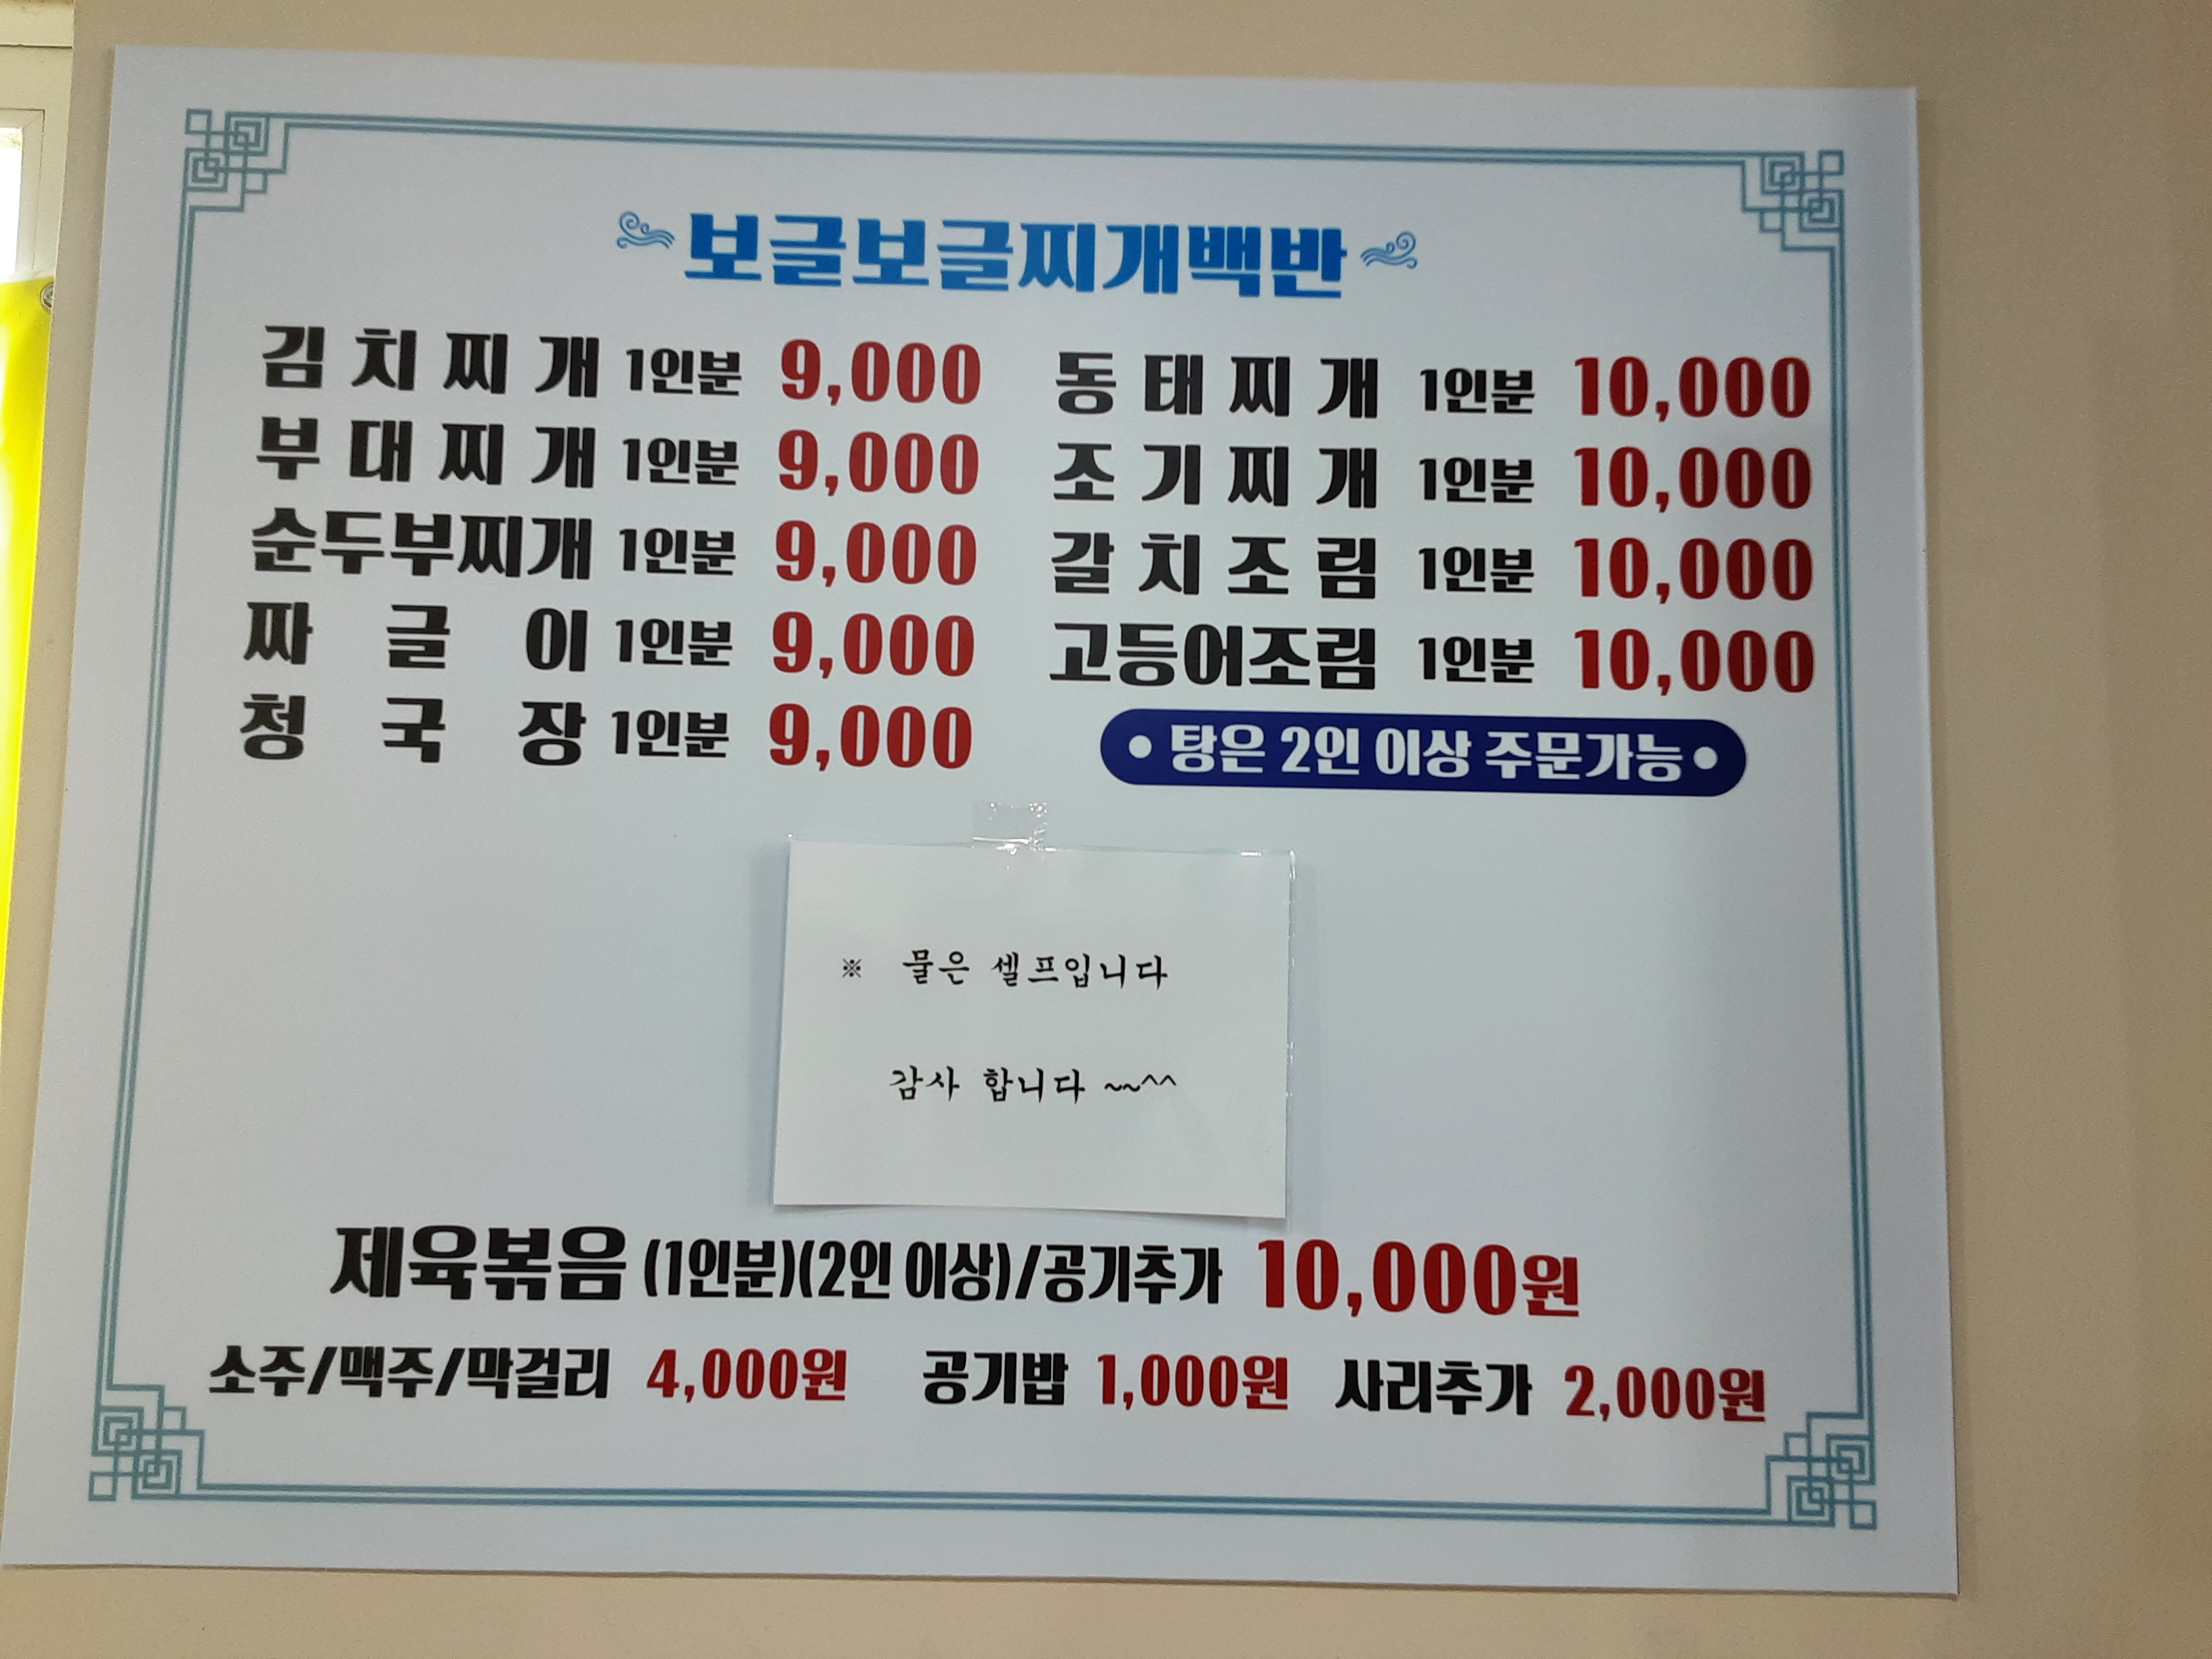 보글보글찌개백반
김치찌개 1인분 9,000
부대찌개 1인분 9,000
순두부찌개 1인분 9,000
짜글이 1인분 9,000
청국장 1인분 9,000
동태찌개 1인분 10,000
조기찌개 1인분 10,000
갈치조림 1인분 10,000
고등어조림 1인분 10,000
• 탕은 2인 이상 주문가능 •
※ 물은 셀프입니다
감사 합니다 ~~^^
제육볶음 (1인분)(2인 이상)/공기추가 10,000원
소주/맥주/막걸리 4,000원 공기밥 1,000원 사리추가 2,000원